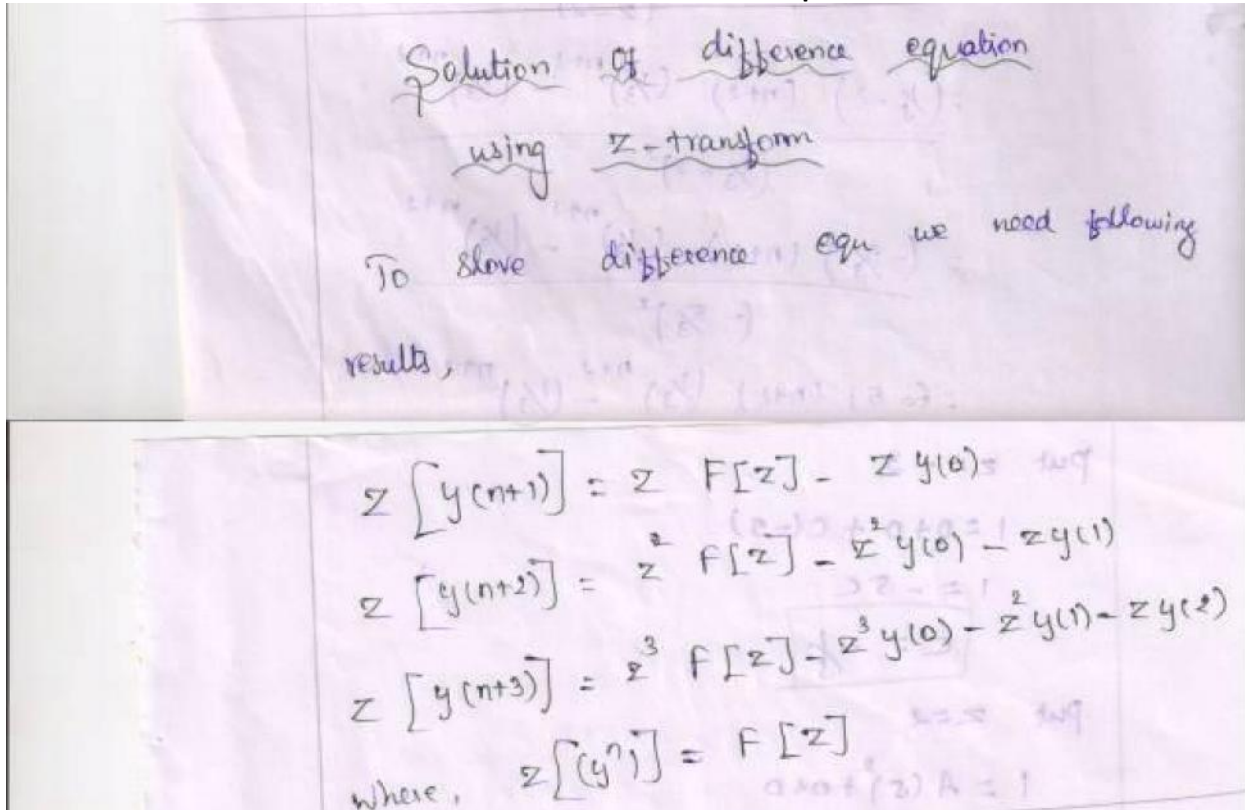 Solution of difference equation
using Z-transform
To slove difference equ we need following
results,
Z [y(n+1)] = Z F[z] - Z y(0)
Z [y(n+2)] = z² F[z] - z² y(0) - z y(1)
Z [y(n+3)] = z³ F[z] - z³ y(0) - z² y(1) - z y(2)
where, z[(yⁿ)] = F[z]